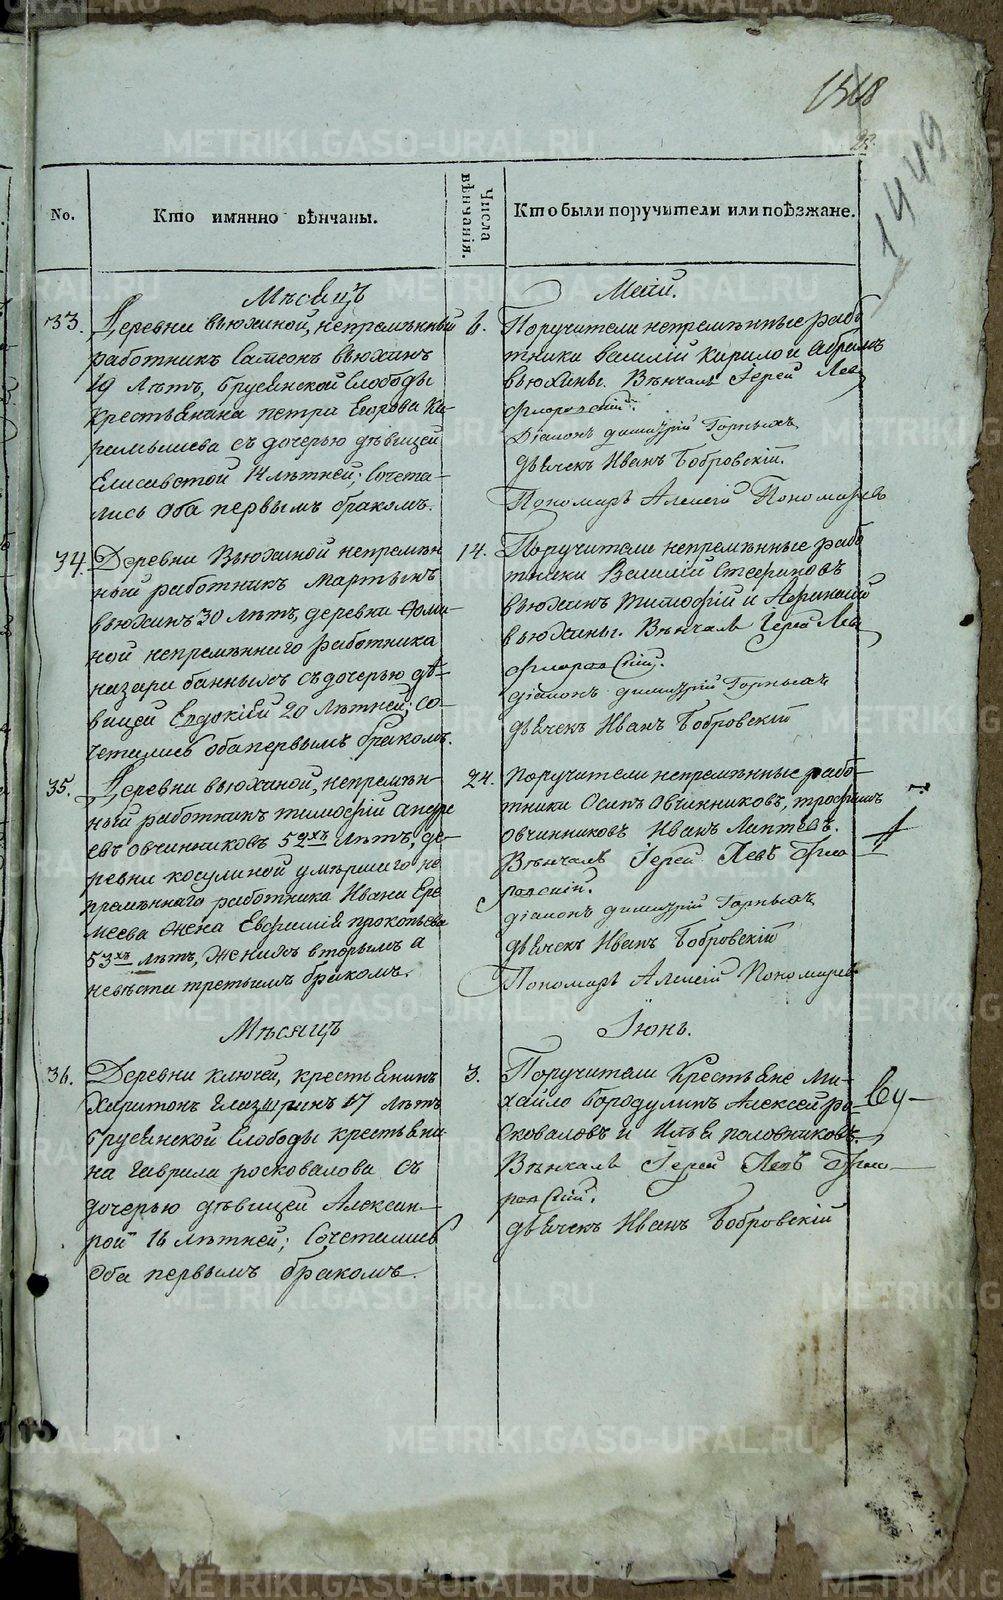 1568
22.
1449
No.
Кто имянно вѣнчаны.
Числа вѣнчанія.
Кто были поручители или поѣзжане.
Мѣсяцъ
Маій.
33. Деревни вьюхиной, непремѣнный
работникъ Самсонъ вьюхинъ
19 лѣтъ, Брусянской Слободы
крестьянина петра Егорова Ка-
рамышева съ дочерью дѣвицей
Елисаветой 14 лѣтней; Сочета-
лись оба первымъ бракомъ.
6. Поручители непремѣнные рабо
тники василій Кирило и Абрамъ
вьюхины. Вѣнчалъ Іерей Левъ
Флоровскій.
Діаконъ димитрій Горныхъ
дьячекъ Иванъ Бобровскій.
Пономарь Алексѣй Пономаревъ
34. Деревни Вьюхиной непремѣн
ный работникъ Мартынъ
вьюхинъ 30 лѣтъ, деревни Фоми-
ной непремѣннаго работника
назара банныхъ съ дочерью дѣ-
вицей Евдокіей 20 лѣтней; со-
четались оба первымъ бракомъ.
14. Поручители непремѣнные рабо
тники Василій Стефановъ
вьюхинъ тимофій и Афанасій
вьюхины. Вѣнчалъ Іерей Левъ
Флоровскій.
діаконъ димитрій Горныхъ
дьячекъ Иванъ Бобровскій
35. Деревни вьюхиной, непремѣн-
ный работникъ тимофій андре
евъ овчинниковъ 52хъ лѣтъ, де-
ревни косулиной умѣршаго не
премѣннаго работника Ивана Ере
меева жена Евфимія прокопьева
53хъ лѣтъ, женихъ вторымъ а
невѣста третьимъ бракомъ.
24. поручители непремѣнные рабо-
тники Осипъ Овчинниковъ, трофимъ
овчинниковъ Иванъ Лаптевъ.
Вѣнчалъ Іерей Левъ Фло
ровскій.
діаконъ димитрій Горныхъ
дьячекъ Иванъ Бобровскій
Пономарь Алексѣй Пономаревъ
Мѣсяцъ
Іюнь.
36. Деревни ключей, крестьянинъ
Харитонъ Глазыринъ 17 лѣтъ
Брусянской Слободы крестьяни
на гаврила росковалова съ
дочерью дѣвицей Алексан-
рой 16 лѣтней; Сочетались
Оба первымъ бракомъ.
3. Поручители Крестьяне Ми-
хайло бородулинъ Алексей ро-
сковаловъ и Илья половниковъ.
Вѣнчалъ Іерей Левъ Фло-
ровскій.
дьячекъ Иванъ Бобровскій
METRIKI.GASO-URAL.RU